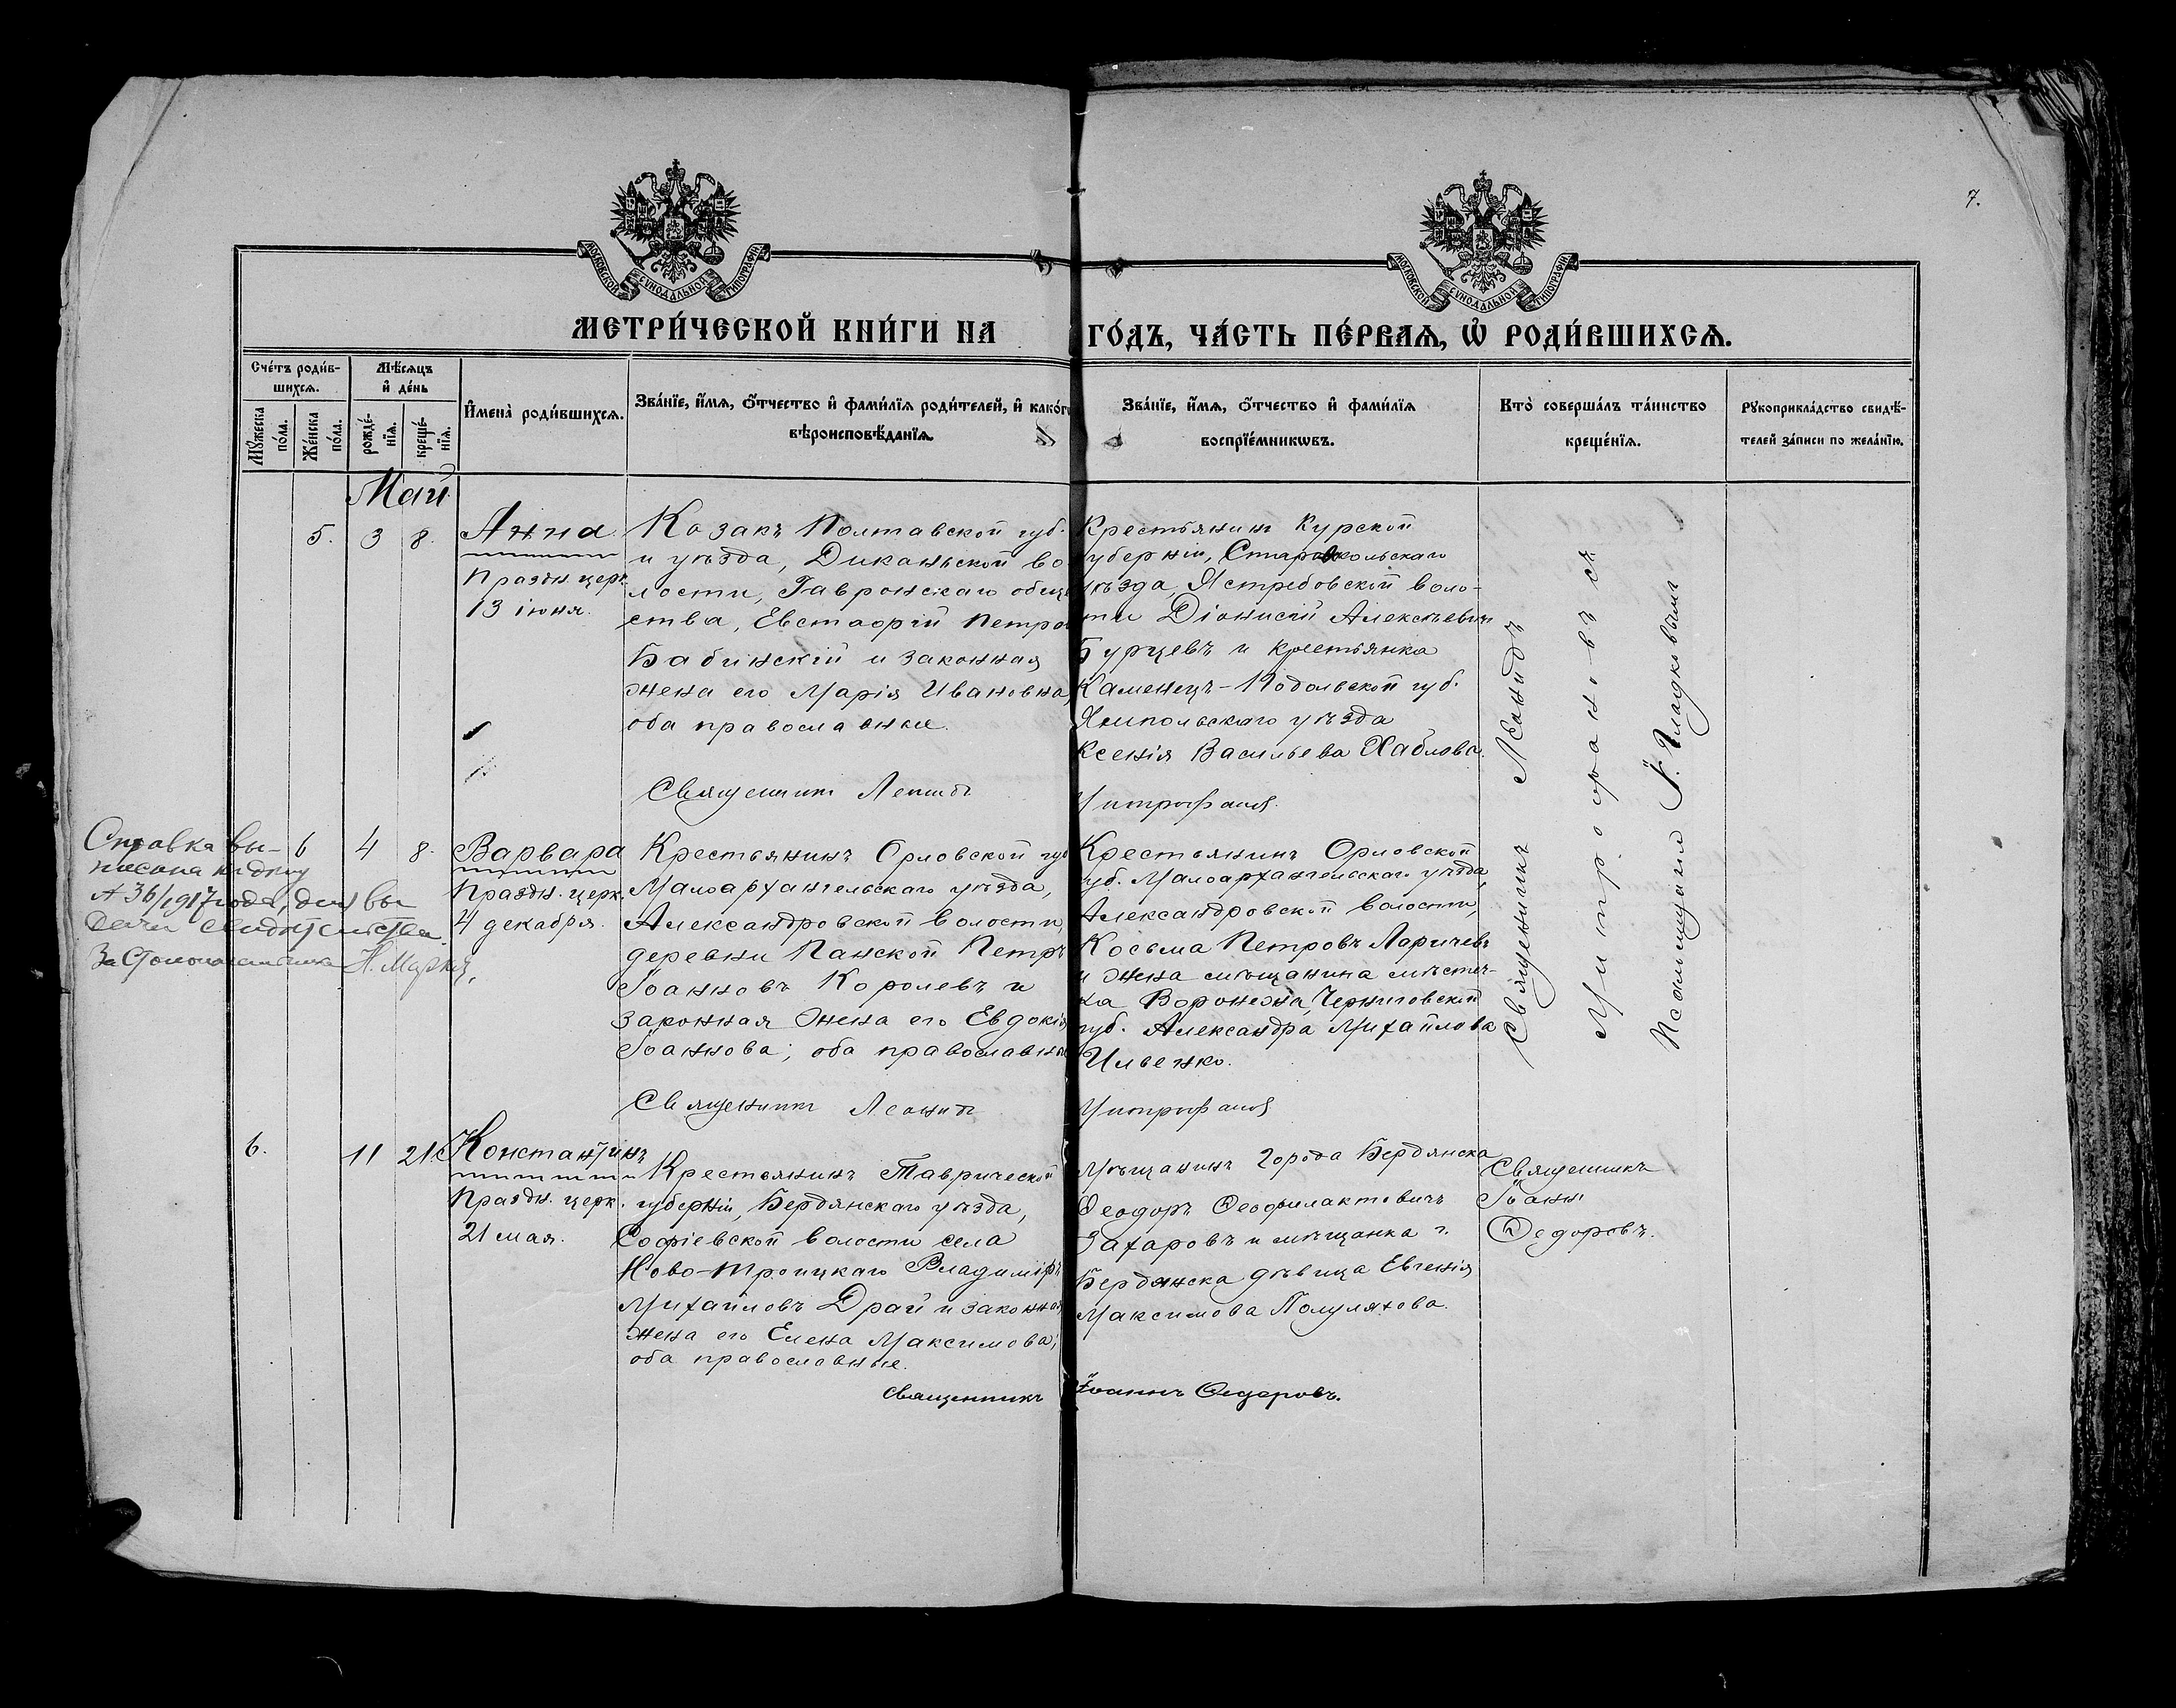 7.
МОСКОВСКОЙ СѴНОДАЛЬНОЙ ТИПОГРАФІИ
МОСКОВСКОЙ СѴНОДАЛЬНОЙ ТИПОГРАФІИ
МЕТРИ́ЧЕСКОЙ КНИ́ГИ НА ГО́ДЪ, ЧА́СТЬ ПЕ́РВАѦ, Ѡ҆ РОДИ́ВШИХСѦ.
Сче́тъ роди́в-
шихсѧ.
Мꙋ́жеска
по́ла.
Же́нска
по́ла.
Мѣ́сѧцъ
и҆ де́нь
рожде́-
нїѧ.
креще́-
нїѧ.
И҆мена̀ роди́вшихсѧ.
Зва́нїе, и҆́мѧ, ѻ҆́тчество и҆ фами́лїѧ роди́телей, и҆ како́гѡ
вѣроисповѣ́данїѧ.
Зва́нїе, и҆́мѧ, ѻ҆́тчество и҆ фами́лїѧ
воспрїе́мникѡвъ.
Кто̀ соверша́лъ та́инство
креще́нїѧ.
Рꙋкоприкла́дство свидѣ́-
телей за́писи по жела́нїю.
Май
5. 3 8.
Анна
Праздн. церк.
13 іюня.
Козакъ Полтавской губ.
и уѣзда, Диканьской во
лости, Гавронскаго обще
ства, Евстафій Петро
Бабинскій и законная
жена его Марія Ивановна,
оба православные.
Священникъ Леонидъ
Крестьянинъ Курской
губерніи, Старооскольскаго
уѣзда, Ястребовской воло-
сти Діонисій Алексѣевичъ
Бурцевъ и крестьянка
Каменецъ-Подольской губ.
Ямпольскаго уѣзда
Ксенія Васильева Хаблова.
Митрофановъ
Священникъ Леонидъ
Митрофановъ съ
Псаломщикомъ І. Гладковымъ
Справка вы-
писана къ дѣлу
№ 36/1917 года, для вы
дачи свидѣтельства.
За Столоначальника Н.
6 4 8.
Варвара
Праздн. церк.
4 декабря.
Крестьянинъ Орловской губ
Малоархангельскаго уѣзда,
Александровской волости,
деревни Панской Петръ
Іоанновъ Королевъ и
законная жена его Евдокія
Іоаннова; оба православные
Священникъ Леонидъ
Крестьянинъ Орловской
губ. Малоархангельскаго уѣзда,
Александровской волости,
Косьма Петровъ Ларичевъ
и жена мѣщанина мѣстеч-
ка Воронежа, Черниговской
губ. Александра Михайлова
Ильенко.
Митрофановъ
6. 11 21.
Константинъ
Праздн. церк.
21 мая.
Крестьянинъ Таврической
губерніи, Бердянскаго уѣзда,
Софіевской волости села
Ново-Троицкаго Владиміръ
Михайловъ Драй и законная
жена его Елена Максимова;
оба православные.
Священникъ
Мѣщанинъ города Бердянска
Ѳеодоръ Ѳеофилактовичъ
Захаровъ и мѣщанка г.
Бердянска дѣвица Евгенія
Максимова Полуляхова.
Іоаннъ Ѳедоровъ.
Священникъ
Іоаннъ
Ѳедоровъ.